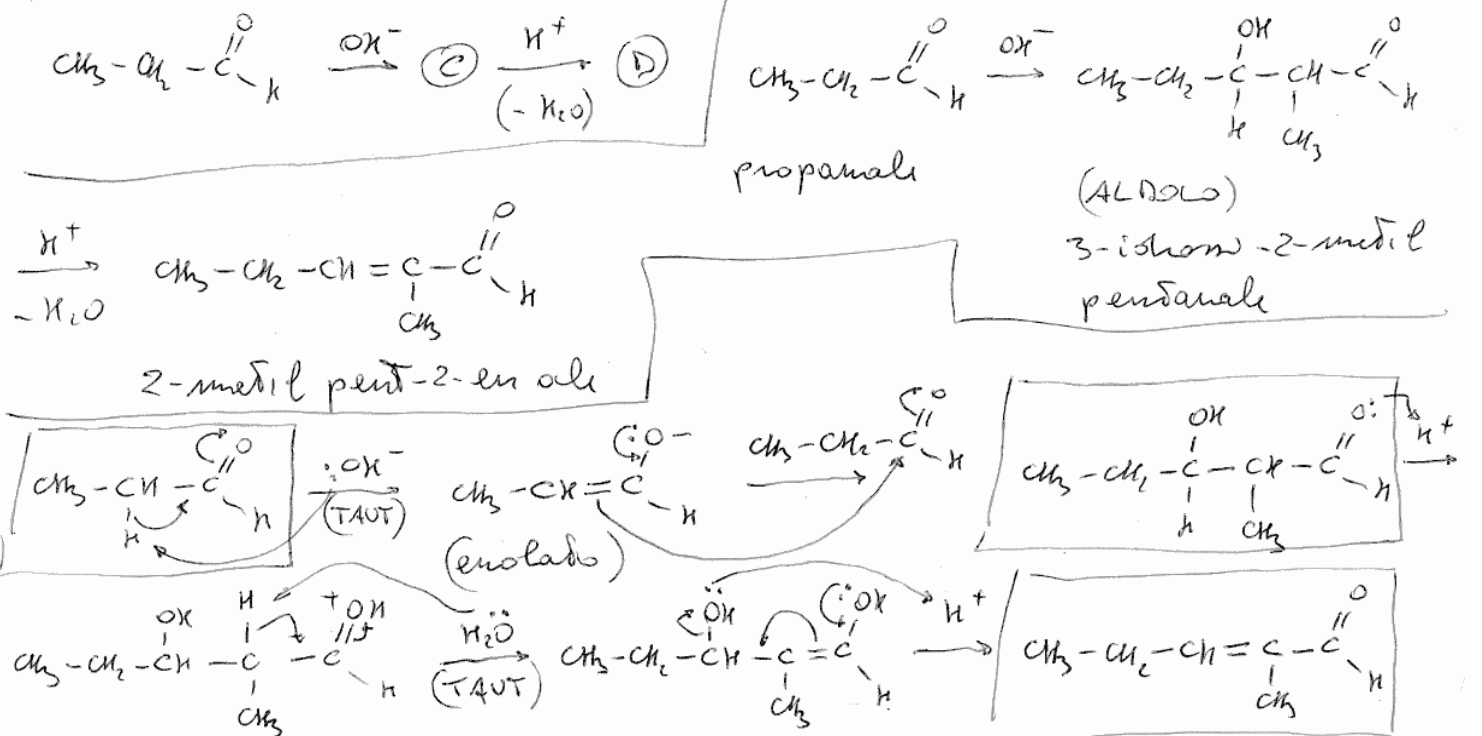 CH3-CH2-C(=O)-H  OH-→  (C)  H+→ (-H2O)  (D)
CH3-CH2-C(=O)-H  OH-→  CH3-CH2-C(OH)(H)-CH(CH3)-C(=O)-H
propanale
(ALDOLO)
3-idrossi-2-metil
pentanale
H+→ -H2O  CH3-CH2-CH=C(CH3)-C(=O)-H
2-metil pent-2-en ale
CH3-CH(H)-C(=O)-H  :OH-→ (TAUT)  CH3-CH=C(:O-)-H  CH3-CH2-C(=O)-H→  CH3-CH2-C(OH)(H)-CH(CH3)-C(=O:)-H  H+→
(enolato)
CH3-CH2-CH(OH)-C(H)(CH3)-C(=+OH)-H  H2Ö→ (TAUT)  CH3-CH2-CH(ÖH)-C(CH3)=C(:OH)-H  H+→  CH3-CH2-CH=C(CH3)-C(=O)-H